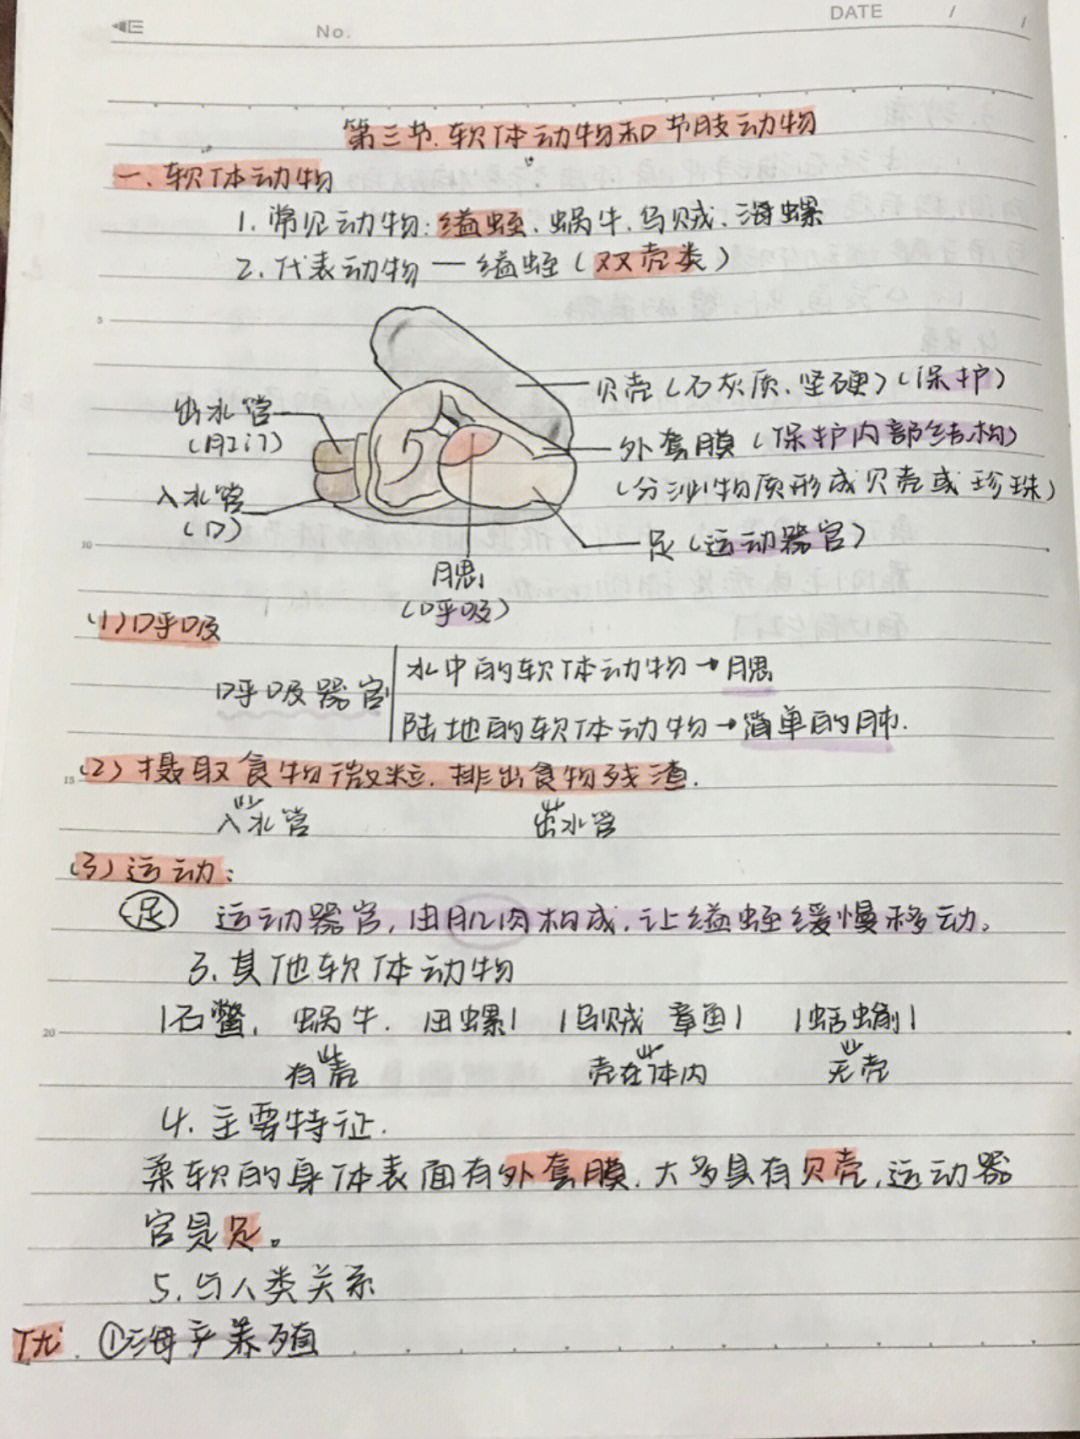 No.
DATE / /
第三节.软体动物和节肢动物
一、软体动物
1. 常见动物:缢蛏、蜗牛、乌贼、海螺
2. 代表动物—缢蛏(双壳类)
5
贝壳(石灰质、坚硬)(保护)
出水管
(肛门)
外套膜(保护内部结构)
(分泌物质形成贝壳或珍珠)
入水管
(口)
足(运动器官)
10
腮
(呼吸)
(1)呼吸
呼吸器官
水中的软体动物→腮
陆地的软体动物→简单的肺.
15
(2)摄取食物微粒.排出食物残渣.
入水管 出水管
(3)运动:
足 运动器官,由肌肉构成.让缢蛏缓慢移动。
3. 其他软体动物
|石鳖, 蜗牛. 田螺| |乌贼 章鱼| |蛞蝓|
20
有壳 壳在体内 无壳
4. 主要特征.
柔软的身体表面有外套膜.大多具有贝壳,运动器
官是足。
5. 与人类关系
优. ①海产养殖